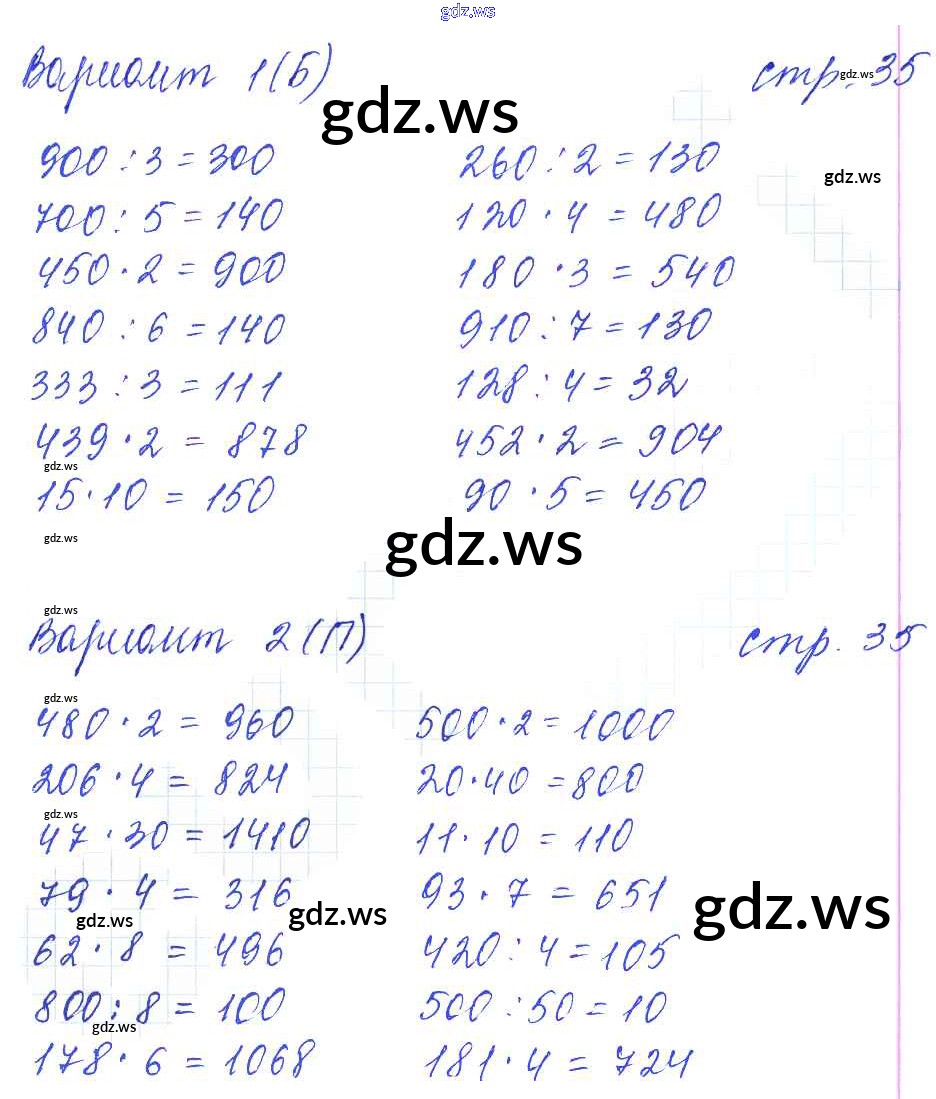 gdz.ws
Вариант 1(Б) стр. 35
gdz.ws
gdz.ws
900 : 3 = 300 260 : 2 = 130
gdz.ws
700 : 5 = 140 120 · 4 = 480
450 · 2 = 900 180 · 3 = 540
840 : 6 = 140 910 : 7 = 130
333 : 3 = 111 128 : 4 = 32
439 · 2 = 878 452 · 2 = 904
gdz.ws
15 · 10 = 150 90 · 5 = 450
gdz.ws
gdz.ws
gdz.ws
Вариант 2(П) стр. 35
gdz.ws
480 · 2 = 960 500 · 2 = 1000
206 · 4 = 824 20 · 40 = 800
gdz.ws
47 · 30 = 1410 11 · 10 = 110
79 · 4 = 316 93 · 7 = 651
gdz.ws
gdz.ws
gdz.ws
62 · 8 = 496 420 : 4 = 105
800 : 8 = 100 500 : 50 = 10
gdz.ws
178 · 6 = 1068 181 · 4 = 724